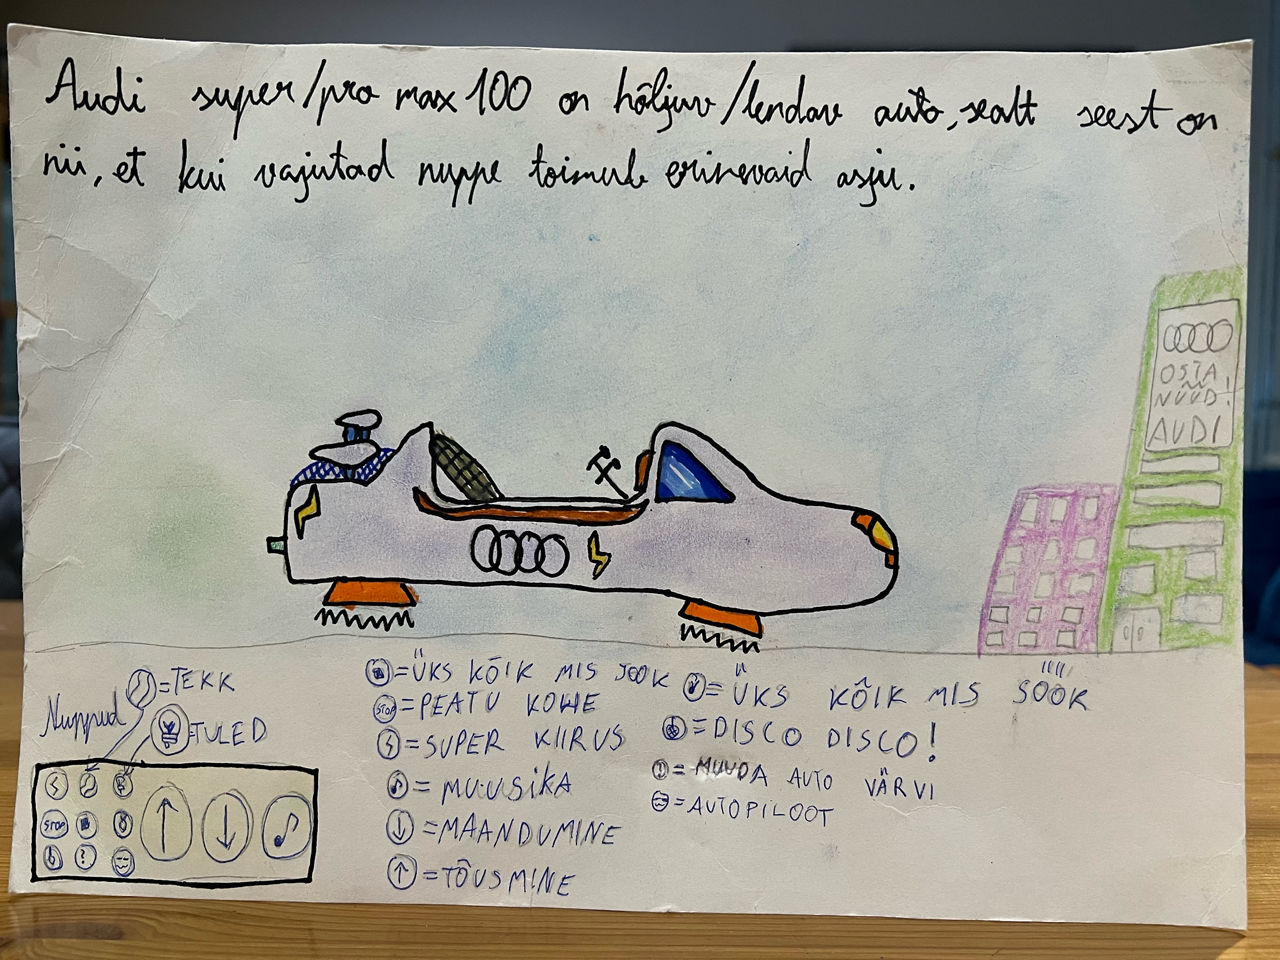 Audi super/pro max 100 on hõljuv/lendav auto, sealt seest on
nii, et kui vajutad nuppe toimub erinevaid asju.
OSTA
NÜÜD!
AUDI
Nuppud
=TEKK
=TULED
STOP
=ÜKS KÕIK MIS JOOK
STOP =PEATU KOHE
=SUPER KIIRUS
=MUUSIKA
=MAANDUMINE
=TÕUSMINE
=ÜKS KÕIK MIS SÖÖK
=DISCO DISCO!
=MUUDA AUTO VÄRVI
=AUTOPILOOT